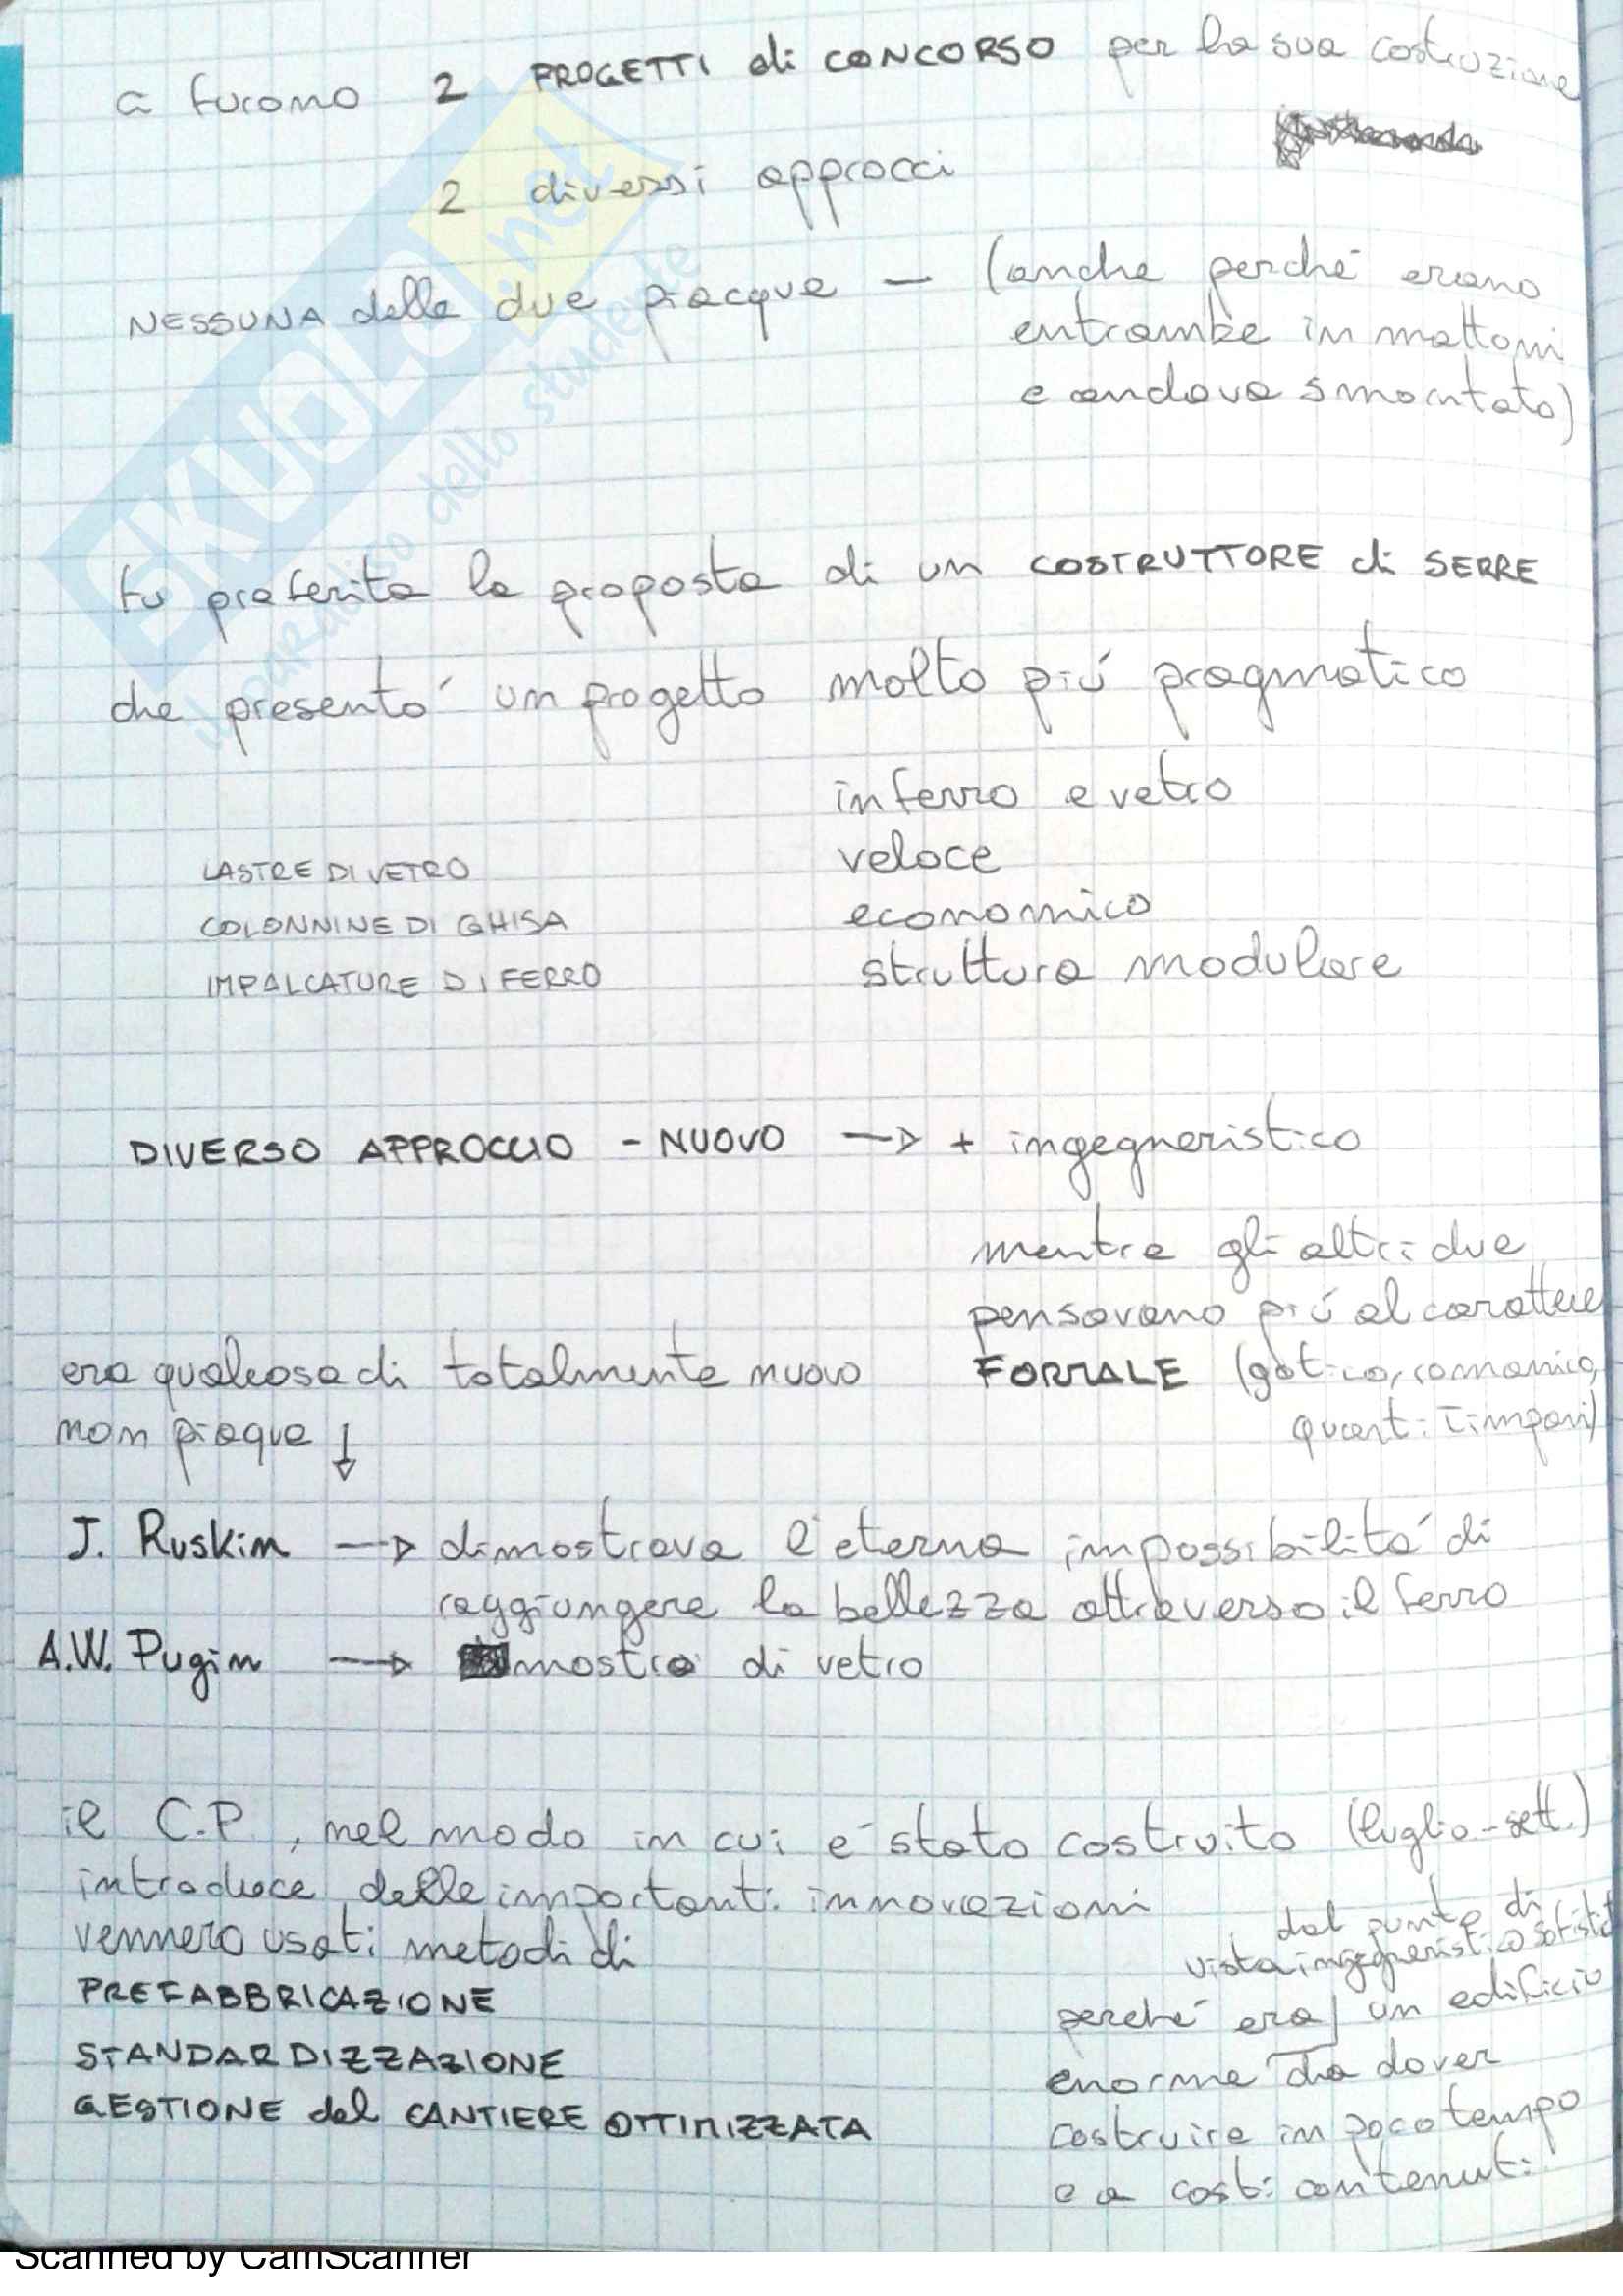 ci furono 2 PROGETTI di CONCORSO per la sua costruzione
2 diversi approcci
NESSUNA delle due piacque — (anche perché erano
entrambe in mattoni
e andava smontato)
fu preferita la proposta di un COSTRUTTORE di SERRE
che presentó un progetto molto piú pragmatico
in ferro e vetro
LASTRE DI VETRO veloce
COLONNINE DI GHISA economico
IMPALCATURE DI FERRO struttura modulare
DIVERSO APPROCCIO - NUOVO → + ingegneristico
mentre gli altri due
pensavano piú al carattere
era qualcosa di totalmente nuovo FORMALE (gotico, romanico,
non piaque ↓ quanti timpani)
J. Ruskin → dimostrava l'eterna impossibilitá di
raggiungere la bellezza attraverso il ferro
A.W. Pugin → mostro di vetro
il C.P., nel modo in cui é stato costruito (luglio-sett.)
introduce delle importanti innovazioni
vennero usati metodi di
PREFABBRICAZIONE
STANDARDIZZAZIONE
GESTIONE del CANTIERE OTTIMIZZATA
dal punto di
vista ingegneristico
perché era un edificio
enorme da dover
costruire in poco tempo
e a costi contenuti
SKUOLA.net
il paradiso dello studente
Scanned by CamScanner